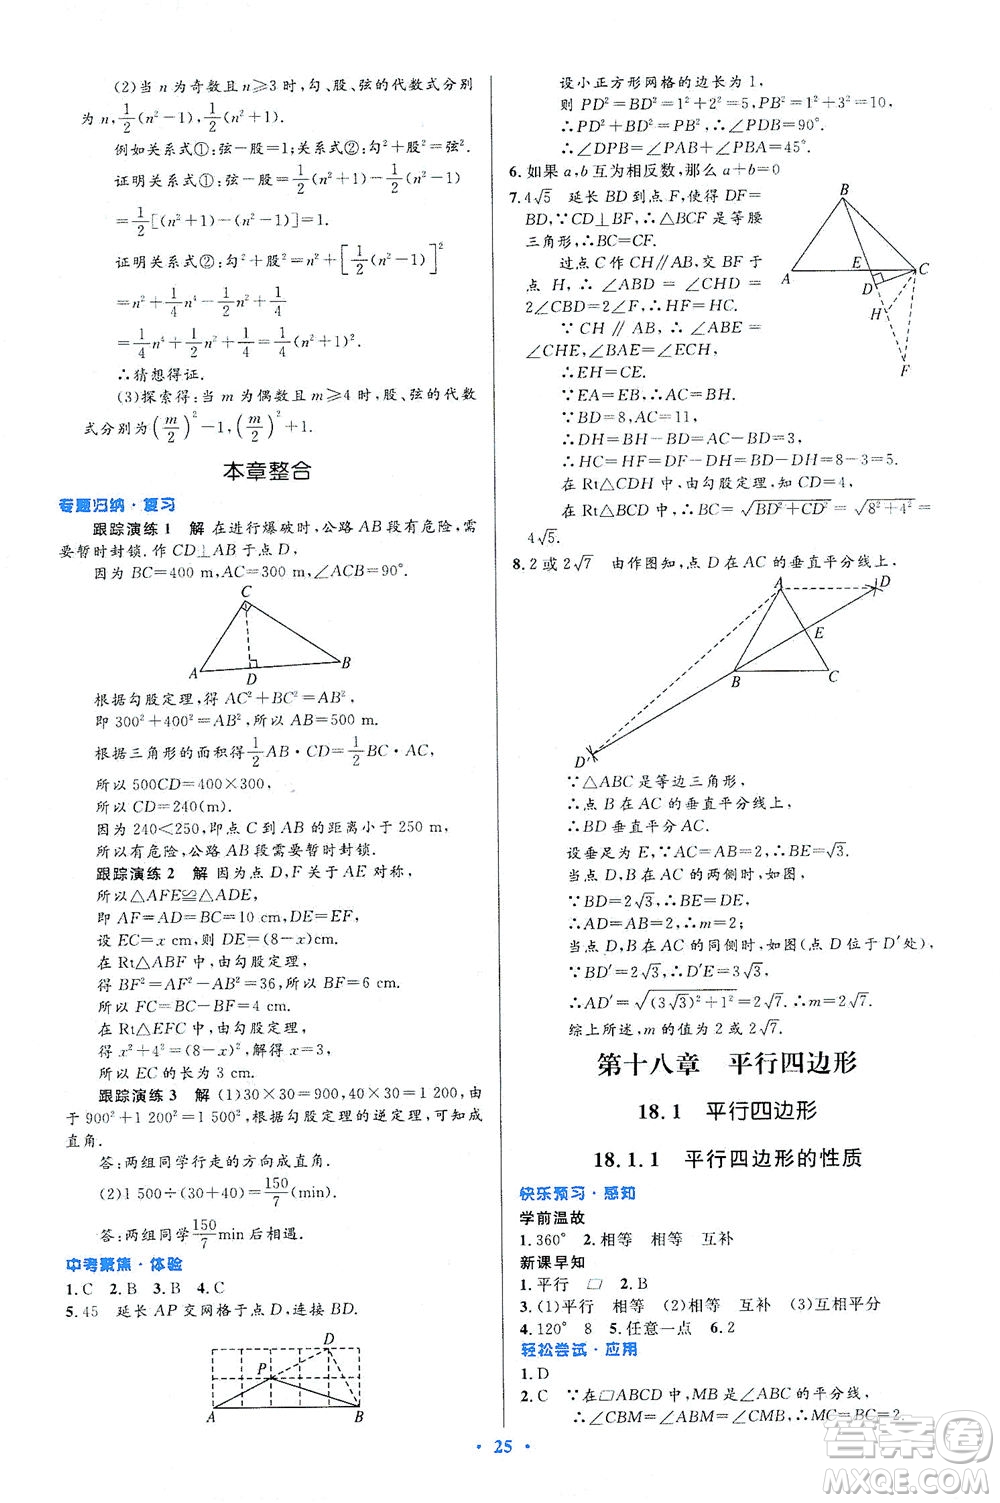 (2)当 n 为奇数且 n≥3 时,勾、股、弦的代数式分别
为 n,1/2(n²-1),1/2(n²+1).
例如关系式①:弦-股=1;关系式②:勾²+股²=弦².
证明关系式①:弦-股=1/2(n²+1)-1/2(n²-1)
=1/2[(n²+1)-(n²-1)]=1.
证明关系式②:勾²+股²=n²+[1/2(n²-1)]²
=1/4n⁴-1/2n²+1/4+n²
=1/4n⁴+1/2n²+1/4=1/4(n²+1)².
∴猜想得证.
(3)探索得:当 m 为偶数且 m≥4 时,股、弦的代数
式分别为(m/2)²-1,(m/2)²+1.
本章整合
专题归纳·复习
跟踪演练 1 解 在进行爆破时,公路 AB 段有危险,需
要暂时封锁.作 CD⊥AB 于点 D,
因为 BC=400 m,AC=300 m,∠ACB=90°.
C
A
D
B
根据勾股定理,得 AC²+BC²=AB²,
即 300²+400²=AB²,所以 AB=500 m.
根据三角形的面积得1/2AB·CD=1/2BC·AC,
所以 500CD=400×300,
所以 CD=240(m).
因为 240<250,即点 C 到 AB 的距离小于 250 m,
所以有危险,公路 AB 段需要暂时封锁.
跟踪演练 2 解 因为点 D,F 关于 AE 对称,
所以△AFE≌△ADE,
即 AF=AD=BC=10 cm,DE=EF,
设 EC=x cm,则 DE=(8-x)cm.
在 Rt△ABF 中,由勾股定理,
得 BF²=AF²-AB²=36,所以 BF=6 cm.
所以 FC=BC-BF=4 cm.
在 Rt△EFC 中,由勾股定理,
得 x²+4²=(8-x)²,解得 x=3.
所以 EC 的长为 3 cm.
跟踪演练 3 解 (1)30×30=900,40×30=1 200,由
于 900²+1 200²=1 500²,根据勾股定理的逆定理,可知成
直角.
答:两组同学行走的方向成直角.
(2)1 500÷(30+40)=150/7(min).
答:两组同学150/7min 后相遇.
中考聚焦·体验
1.C 2.B 3.B 4.C
5.45 延长 AP 交网格于点 D,连接 BD.
D
P
A
B
设小正方形网格的边长为 1,
则 PD²=BD²=1²+2²=5,PB²=1²+3²=10,
∴PD²+BD²=PB²,∠PDB=90°.
∴∠DPB=∠PAB+∠PBA=45°.
6.如果 a,b 互为相反数,那么 a+b=0
7.4√5 延长 BD 到点 F,使得 DF=
BD,∵CD⊥BF,∴△BCF 是等腰
三角形,∴BC=CF.
过点 C 作 CH∥AB,交 BF 于
点 H,∴∠ABD=∠CHD=
2∠CBD=2∠F,∴HF=HC.
∵CH∥AB,∴∠ABE=
∠CHE,∠BAE=∠ECH,
∴EH=CE.
∵EA=EB,∴AC=BH.
∵BD=8,AC=11,
∴DH=BH-BD=AC-BD=3,
∴HF=HC=8-3=5.
在 Rt△CDH 中,由勾股定理,得 CD=4,
在 Rt△BCD 中,BC=√(BD²+CD²)=√(8²+4²)=
4√5.
B
A
E
C
D
H
F
8.2 或 2√7 由作图知,点 D 在 AC 的垂直平分线上,
A
D
E
B
C
D′
∵△ABC 是等边三角形,
∴点 B 在 AC 的垂直平分线上,
∴BD 垂直平分 AC.
设垂足为 E,∵AC=AB=2,∴BE=√3.
当点 D,B 在 AC 的两侧时,如图,
∵BD=2√3,∴BE=DE=√3.
∴AD=AB=2,∴m=2;
当点 D,B 在 AC 的同侧时,如图(点 D 位于 D′处),
∵BD′=2√3,∴D′E=3√3,
∴AD′=√((3√3)²+1²)=2√7,∴m=2√7.
综上所述,m 的值为 2 或 2√7.
第十八章 平行四边形
18.1 平行四边形
18.1.1 平行四边形的性质
快乐预习·感知
学前温故
1.360° 2.相等 相等 互补
新课早知
1.平行 ▱ 2.B
3.(1)平行 相等 (2)相等 互补 (3)互相平分
4.120° 8 5.任意一点 6.2
轻松尝试·应用
1.D
2.C ∵在▱ABCD 中,MB 是∠ABC 的平分线,
∴∠CBM=∠ABM=∠CMB,∴MC=BC=2.
25
答案圈
MXQE.COM